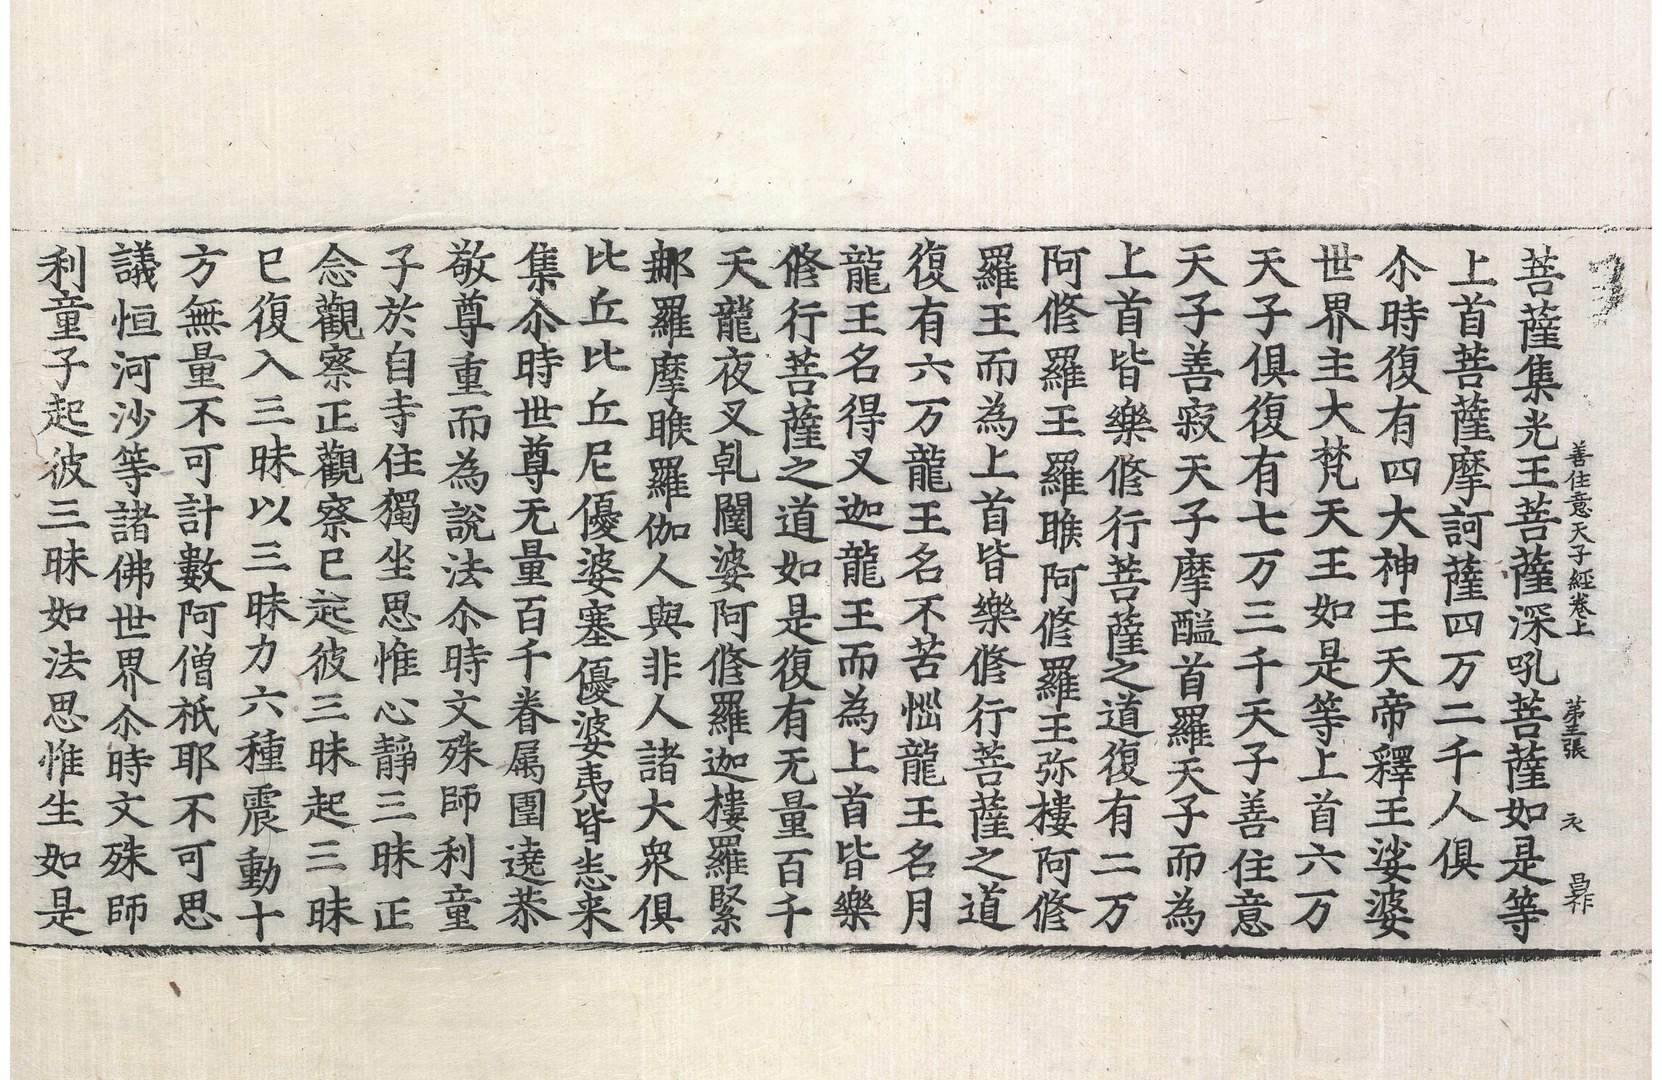 善住意天子經卷上　第三張　衣　昌作
菩薩集光王菩薩深吼菩薩如是等
上首菩薩摩訶薩四万二千人俱
尒時復有四大神王天帝釋王娑婆
世界主大梵天王如是等上首六万
天子俱復有七万三千天子善住意
天子善寂天子摩醯首羅天子而為
上首皆樂修行菩薩之道復有二万
阿修羅王羅睺阿修羅王弥樓阿修
羅王而為上首皆樂修行菩薩之道
復有六万龍王名不苦惱龍王名月
龍王名得叉迦龍王而為上首皆樂
修行菩薩之道如是復有无量百千
天龍夜叉乹闥婆阿修羅迦樓羅緊
那羅摩睺羅伽人與非人諸大衆俱
比丘比丘尼優婆塞優婆夷皆悉来
集尒時世尊无量百千眷属圍遶恭
敬尊重而為說法尒時文殊師利童
子於自寺住獨坐思惟心靜三昧正
念觀察正觀察已起彼三昧起三昧
已復入三昧以三昧力六種震動十
方無量不可計數阿僧祇耶不可思
議恒河沙等諸佛世界尒時文殊師
利童子起彼三昧如法思惟生如是